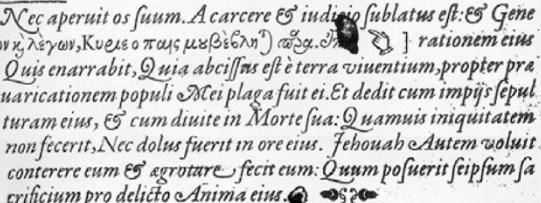 Nec aperuit os suum. A carcere & iudicio sublatus est: & Gene
λέγων, Κυριε ο παις μου βέβλη) ] rationem eius
Quis enarrabit, Quia abcissus est è terra viuentium, propter præ
uaricationem populi Mei plaga fuit ei. Et dedit cum impijs sepul
turam eius, & cum diuite in Morte sua: Quamuis iniquitatem
non fecerit, Nec dolus fuerit in ore eius. Jehouah Autem voluit
conterere eum & ægrotare fecit eum: Quum posuerit seipsum sa
crificium pro delicto Anima eius.